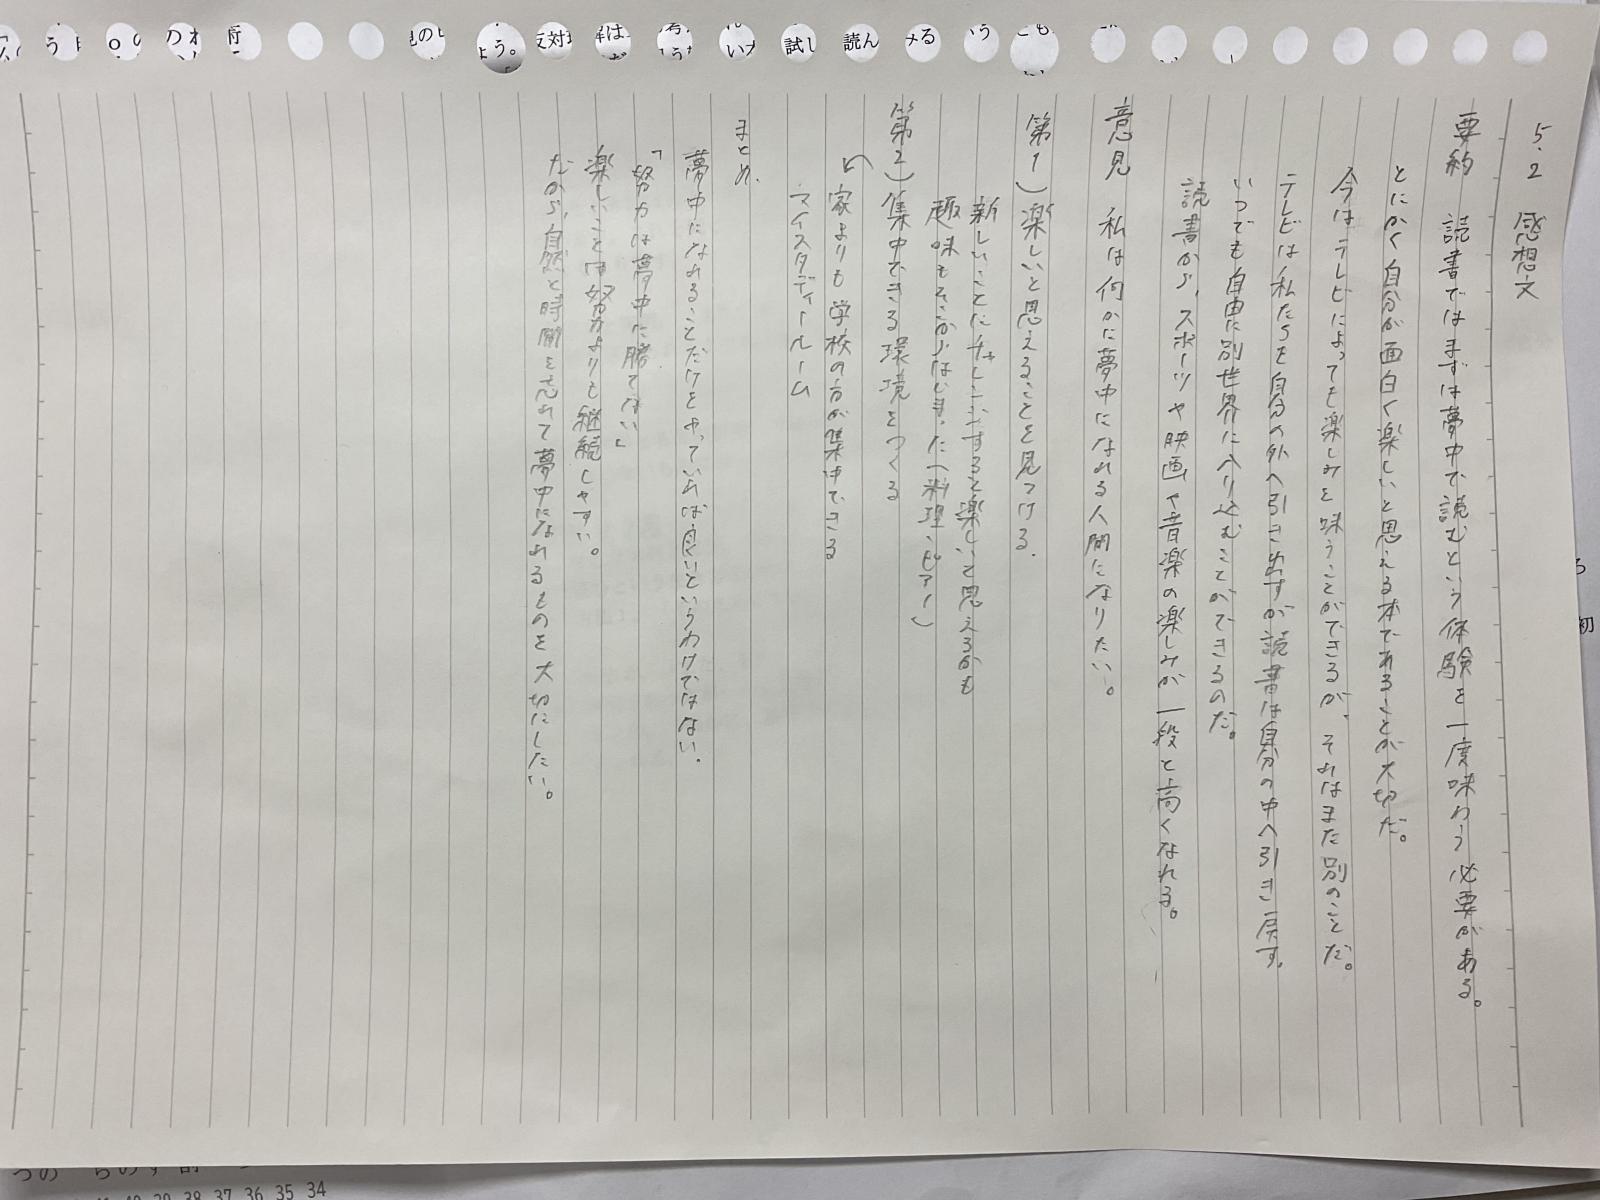 5.2 感想文
要約 読書ではまずは夢中で読むという体験を一度味わう必要がある。
とにかく自分が面白く楽しいと思える本であることが大切だ。
今はテレビによっても楽しみを味うことができるが、それはまた別のことだ。
テレビは私たちを自分の外へ引き出すが読書は自分の中へ引き戻す。
いつでも自由に別世界に入り込むことができるのだ。
読書から、スポーツや映画や音楽の楽しみが一段と高くなれる。
意見 私は何かに夢中になれる人間になりたい。
第1)楽しいと思えることを見つける.
新しいことにチャレンジすると楽しいと思えるかも
趣味もそこからはじまった(料理、ピアノ)
第2)集中できる環境をつくる
家よりも学校の方が集中できる
マイスタディールーム
まとめ.
夢中になれることだけをやっていれば良いというわけではない.
「努力は夢中に勝てない」
楽しいことは努力よりも継続しやすい。
だから、自然と時間を忘れて夢中になれるものを大切にしたい。
試し
読ん
める
反対
よう。
初
38 37 36 35 34